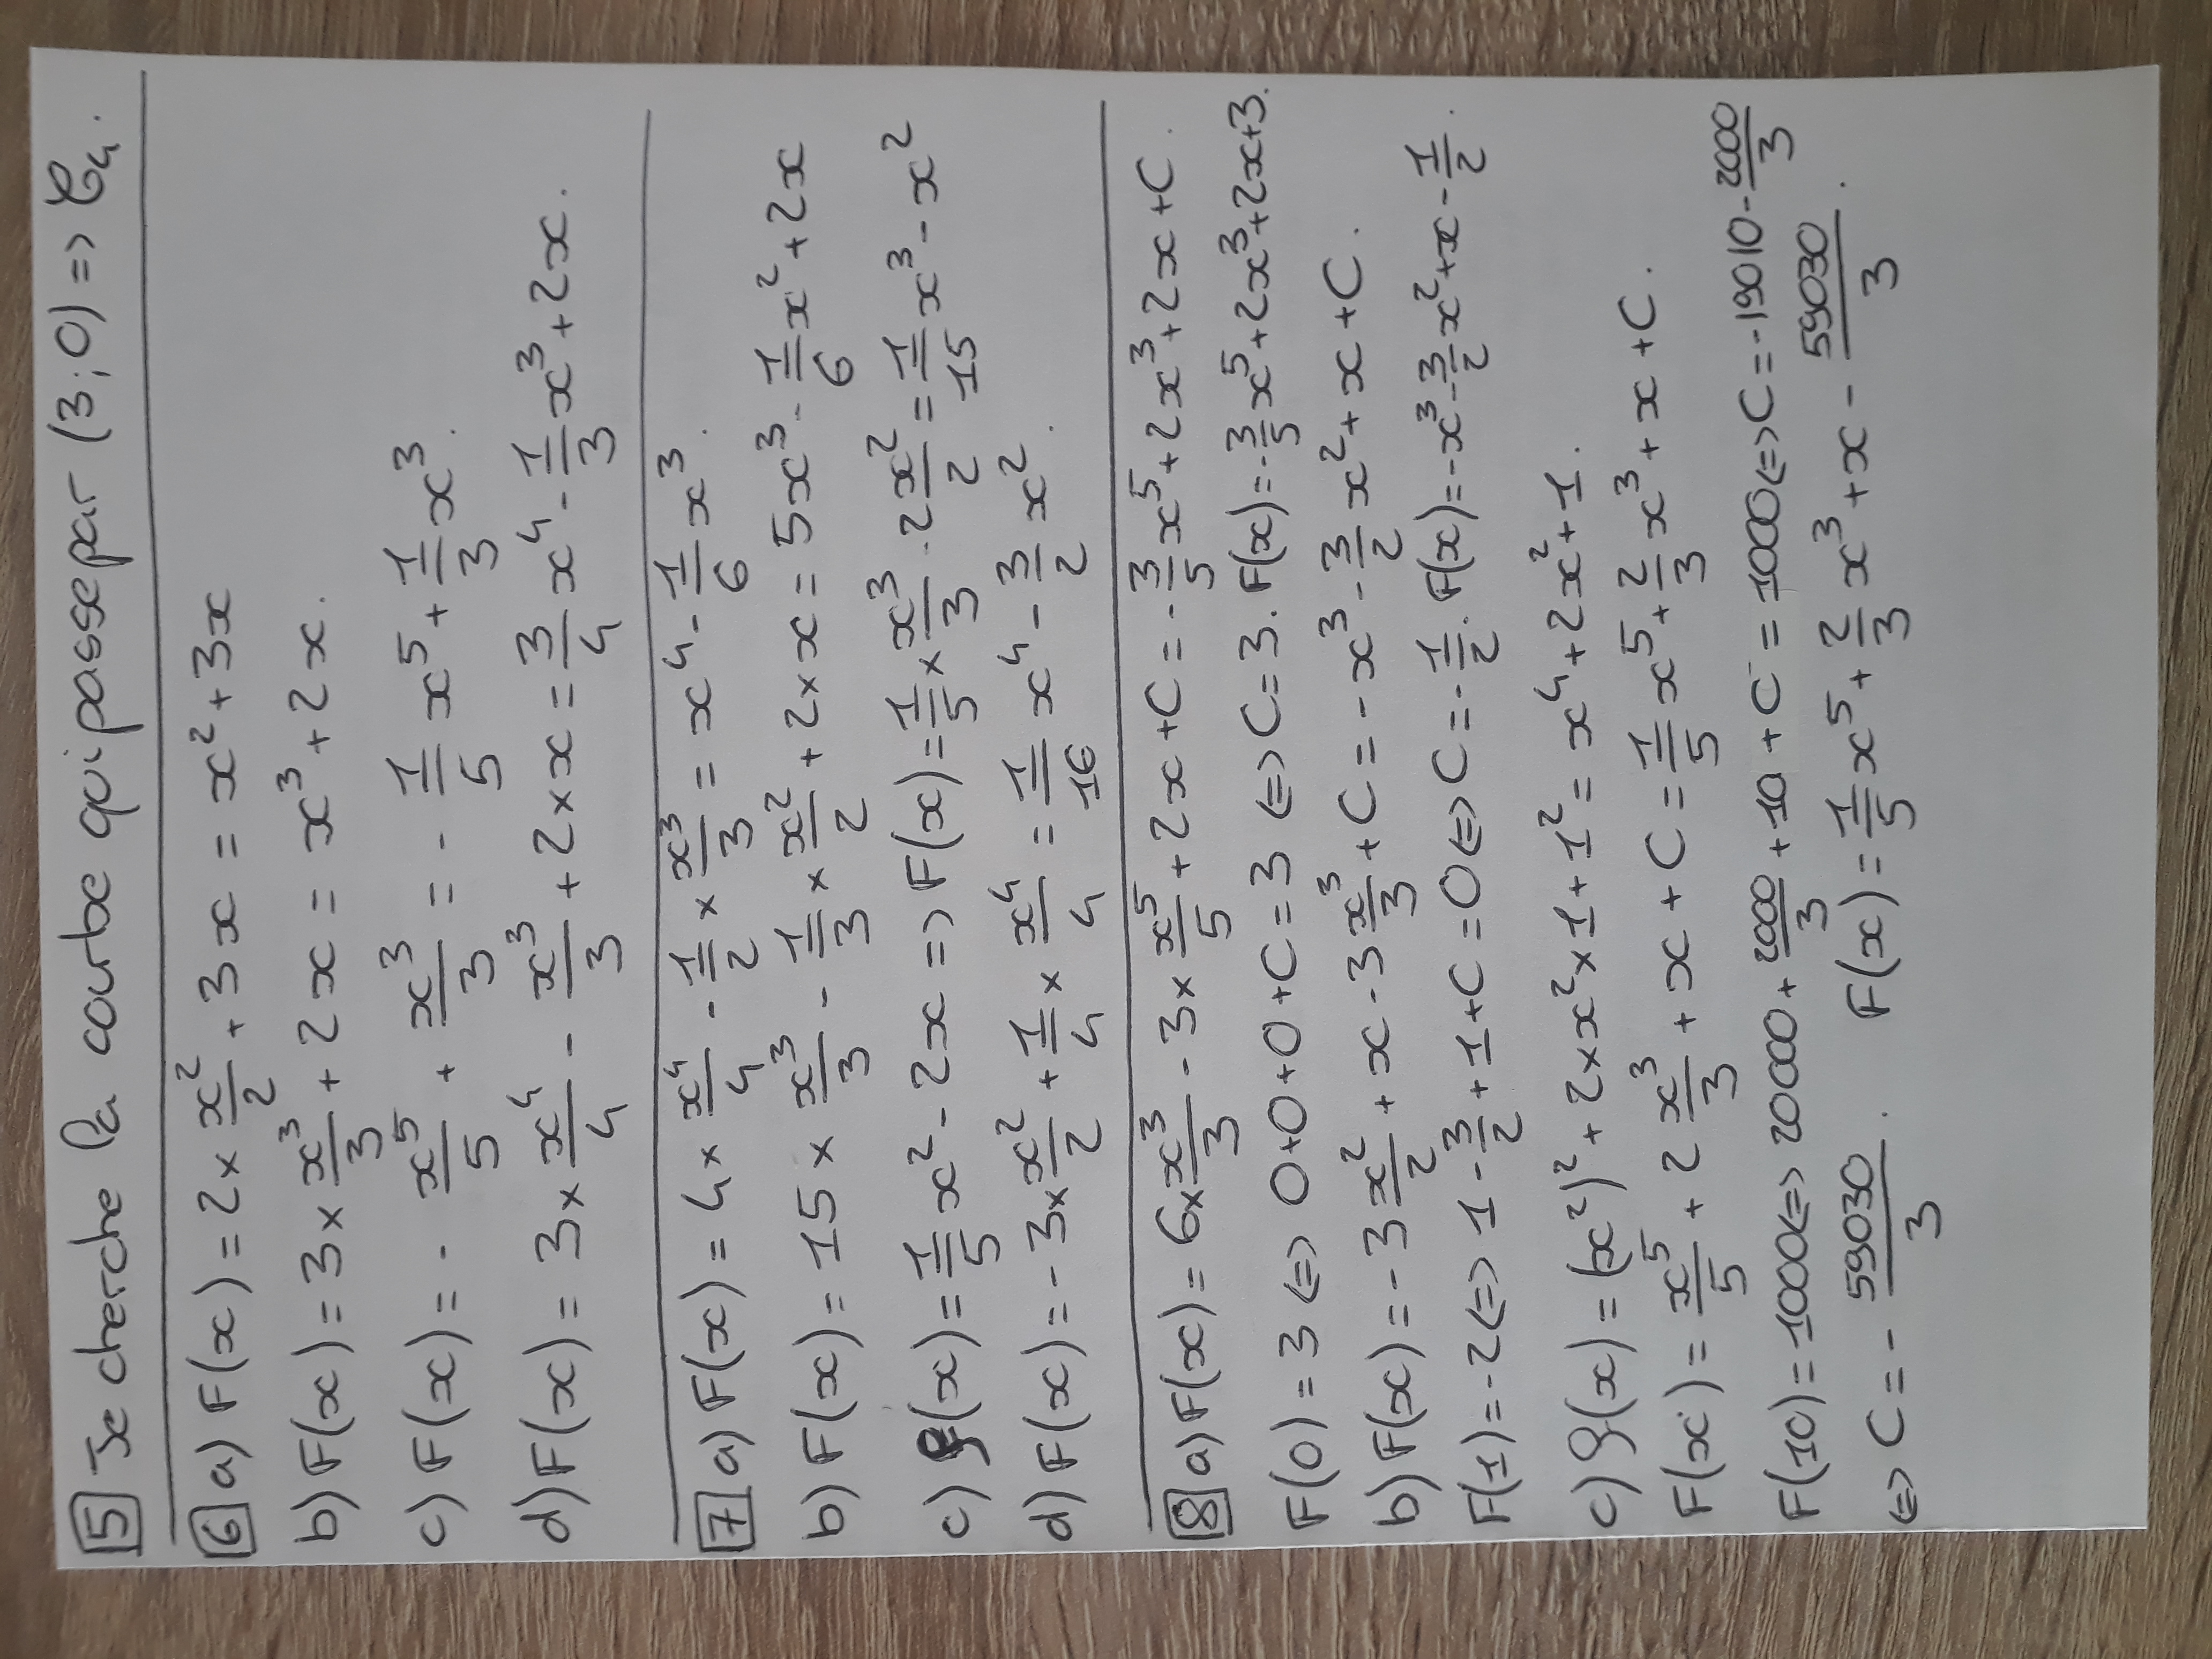 5 Je cherche la courbe qui passe par (3;0) => C₄.
6 a) F(x) = 2 × x²/2 + 3x = x² + 3x
b) F(x) = 3 × x³/3 + 2x = x³ + 2x.
c) F(x) = - x⁵/5 + x³/3 = - 1/5 x⁵ + 1/3 x³.
d) F(x) = 3 × x⁴/4 - x³/3 + 2 × x = 3/4 x⁴ - 1/3 x³ + 2x.
7 a) F(x) = 4 × x⁴/4 - 1/2 × x³/3 = x⁴ - 1/6 x³.
b) F(x) = 15 × x³/3 - 1/3 × x²/2 + 2 × x = 5x³ - 1/6 x² + 2x
c) f(x) = 1/5 x² - 2x => F(x) = 1/5 × x³/3 - 2 x²/2 = 1/15 x³ - x²
d) F(x) = - 3 × x²/2 + 1/4 × x⁴/4 = 1/16 x⁴ - 3/2 x².
8 a) F(x) = 6 × x³/3 - 3 × x⁵/5 + 2x + C = - 3/5 x⁵ + 2x³ + 2x + C.
F(0) = 3 <=> 0+0+0+C = 3 <=> C = 3. F(x) = - 3/5 x⁵ + 2x³ + 2x + 3.
b) F(x) = - 3 x²/2 + x - 3 x³/3 + C = - x³ - 3/2 x² + x + C.
F(1) = -2 <=> 1 - 3/2 + 1 + C = 0 <=> C = - 1/2. F(x) = - x³ - 3/2 x² + x - 1/2.
c) f(x) = (x²)² + 2 × x² × 1 + 1² = x⁴ + 2x² + 1.
F(x) = x⁵/5 + 2 x³/3 + x + C = 1/5 x⁵ + 2/3 x³ + x + C.
F(10) = 1000 <=> 20000 + 2000/3 + 10 + C = 1000 <=> C = -19010 - 2000/3
<=> C = - 59030/3. F(x) = 1/5 x⁵ + 2/3 x³ + x - 59030/3.